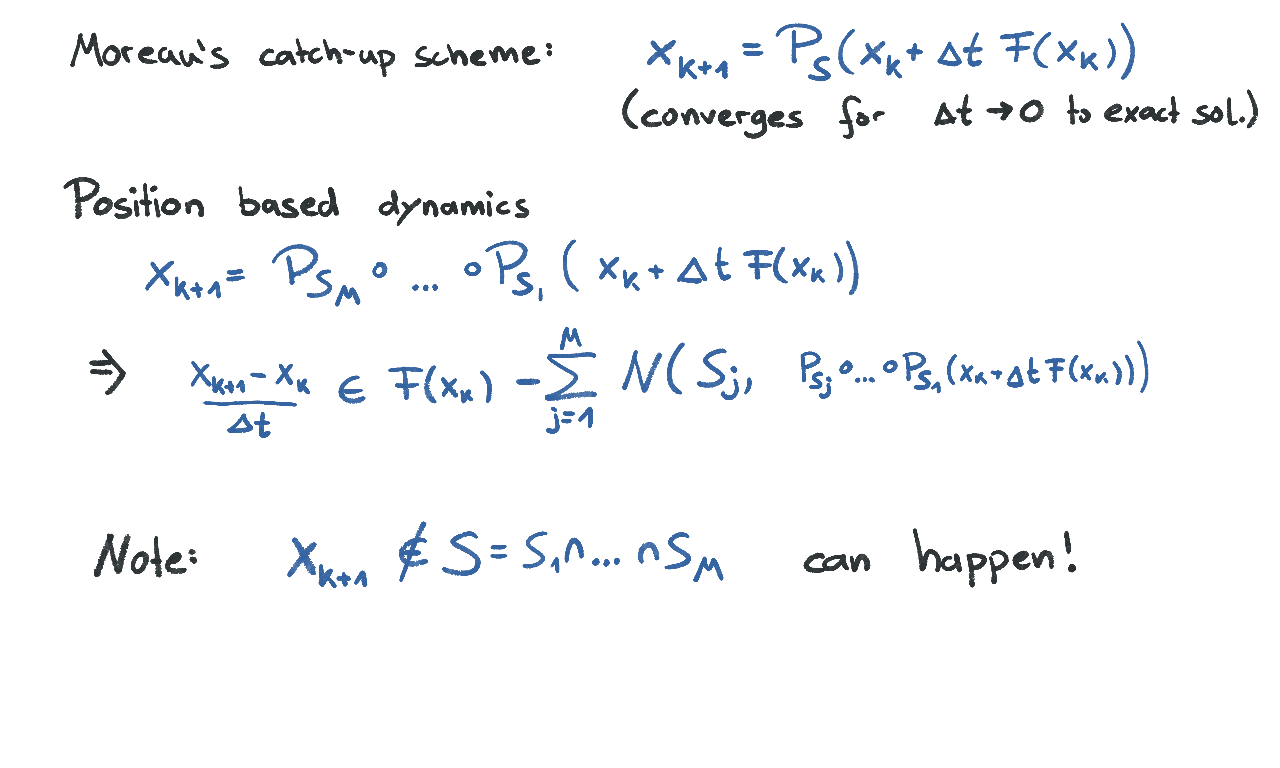 Moreau's catch-up scheme: x_{k+1} = P_S(x_k + Δt F(x_k))
(converges for Δt → 0 to exact sol.)
Position based dynamics
x_{k+1} = P_{S_M} ∘ ... ∘ P_{S_1} (x_k + Δt F(x_k))
⇒ \frac{x_{k+1} - x_k}{Δt} ∈ F(x_k) - \sum_{j=1}^{M} N(S_j, P_{S_j} ∘ ... ∘ P_{S_1}(x_k + Δt F(x_k)))
Note: x_{k+1} ∉ S = S_1 ∩ ... ∩ S_M can happen!